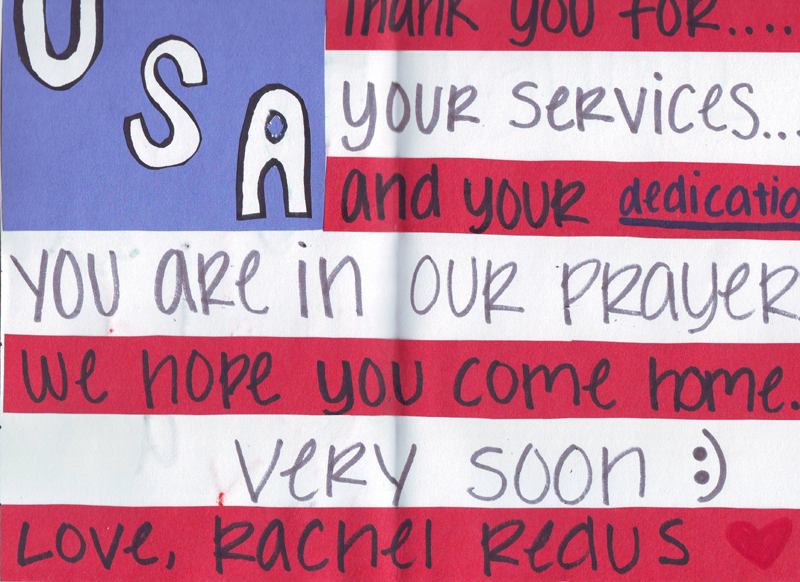 USA
Thank you for....
your services...
and your dedicatio
you are in our prayer
we hope you come home.
very soon :)
Love, Rachel Redus